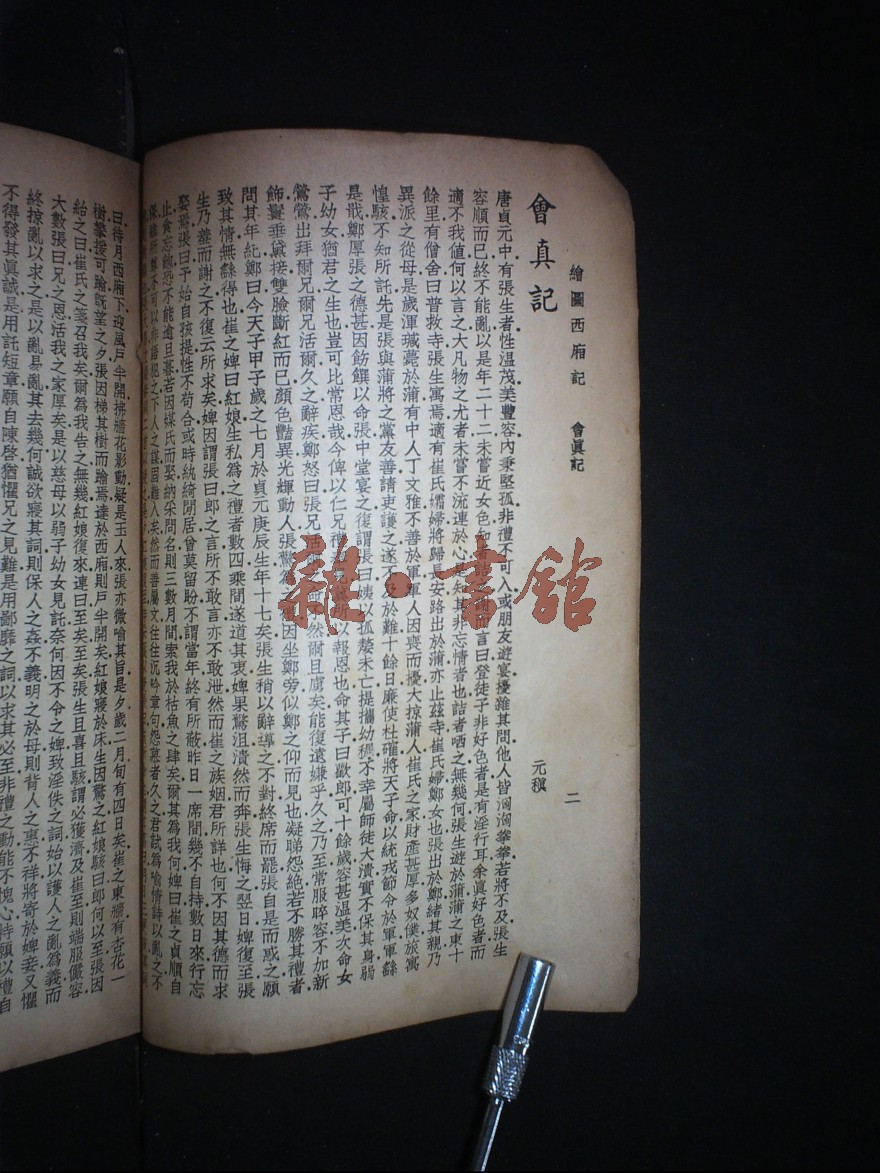 繪圖西廂記 會眞記 二
會真記 元稹
唐貞元中有張生者性温茂美豐容內秉堅孤非禮不可入或朋友遊宴擾雜其間他人皆洶洶拳拳若將不及張生
容順而已終不能亂以是年二十二未嘗近女色知者詰之而言曰登徒子非好色者是有淫行耳余眞好色者而
適不我値何以言之大凡物之尤者未嘗不流連於心是知其非忘情者也詰者哂之無幾何張生遊於蒲蒲之東十
餘里有僧舍曰普救寺張生寓焉適有崔氏孀婦將歸長安路出於蒲亦止茲寺崔氏婦鄭女也張出於鄭緒其親乃
異派之從母是歲渾瑊薨於蒲有中人丁文雅不善於軍軍人因喪而擾大掠蒲人崔氏之家財產甚厚多奴僕旅寓
惶駭不知所託先是張與蒲將之黨友善請吏護之遂不及於難十餘日廉使杜確將天子命以統戎節令於軍軍繇
是戢鄭厚張之德甚因飭饌以命張中堂宴之復謂張曰姨以孤嫠未亡提攜幼稚不幸屬師徒大潰實不保其身弱
子幼女猶君之生也豈可比常恩哉今俾以仁兄禮所以報恩也命其子曰歡郎可十餘歲容甚温美次命女
鶯鶯出拜爾兄爾兄活爾久之辭疾鄭怒曰張兄活爾命不然爾且虜矣能復遠嫌乎久之乃至常服睟容不加新
飾鬟垂黛接雙臉斷紅而已顏色豔異光輝動人張驚爲因坐鄭旁似鄭之仰而見也凝睇怨絕若不勝其禮者
問其年紀鄭曰今天子甲子歲之七月於貞元庚辰生年十七矣張生稍以辭導之不對終席而罷張自是而惑之願
致其情無繇得也崔之婢曰紅娘生私爲之禮者數四乘間遂道其衷婢果驚沮潰然而奔張生悔之翌日婢復至張
生乃羞而謝之不復云所求矣婢因謂張曰郎之言所不敢言亦不敢泄然而崔之族姻君所詳也何不因其德而求
娶焉張曰予始自孩提性不苟合或時紈綺閒居曾莫留盼不謂當年終有所蔽昨日一席間幾不自持數日來行忘
止食忘飽恐不能逾旦暮若因媒氏而娶納采問名則三數月間索我於枯魚之肆矣爾其爲我何婢曰崔之貞順自
保雖所尊不可以非語犯之下人之謀固難入矣然而善屬文往往沉吟章句怨慕者久之君試爲喻情詩以亂之不
曰待月西廂下迎風戶半開拂牆花影動疑是玉人來張亦微喻其旨是夕歲二月旬有四日矣崔之東牆有杏花一
樹攀援可踰旣望之夕張因梯其樹而踰焉達於西廂則戶半開矣紅娘寢於床生因驚之紅娘駭曰郎何以至張因
紿之曰崔氏之箋召我矣爾爲我告之無幾紅娘復來連曰至矣至矣張生且喜且駭謂必獲濟及崔至則端服儼容
大數張曰兄之恩活我之家厚矣是以慈母以弱子幼女見託奈何因不令之婢致淫佚之詞始以護人之亂爲義而
終掠亂以求之是以亂易亂其去幾何誠欲寢其詞則保人之姦不義明之於母則背人之惠不祥將寄於婢妾又懼
不得發其眞誠是用託短章願自陳啓猶懼兄之見難是用鄙靡之詞以求其必至非禮之動能不愧心特願以禮自
雜·書舘